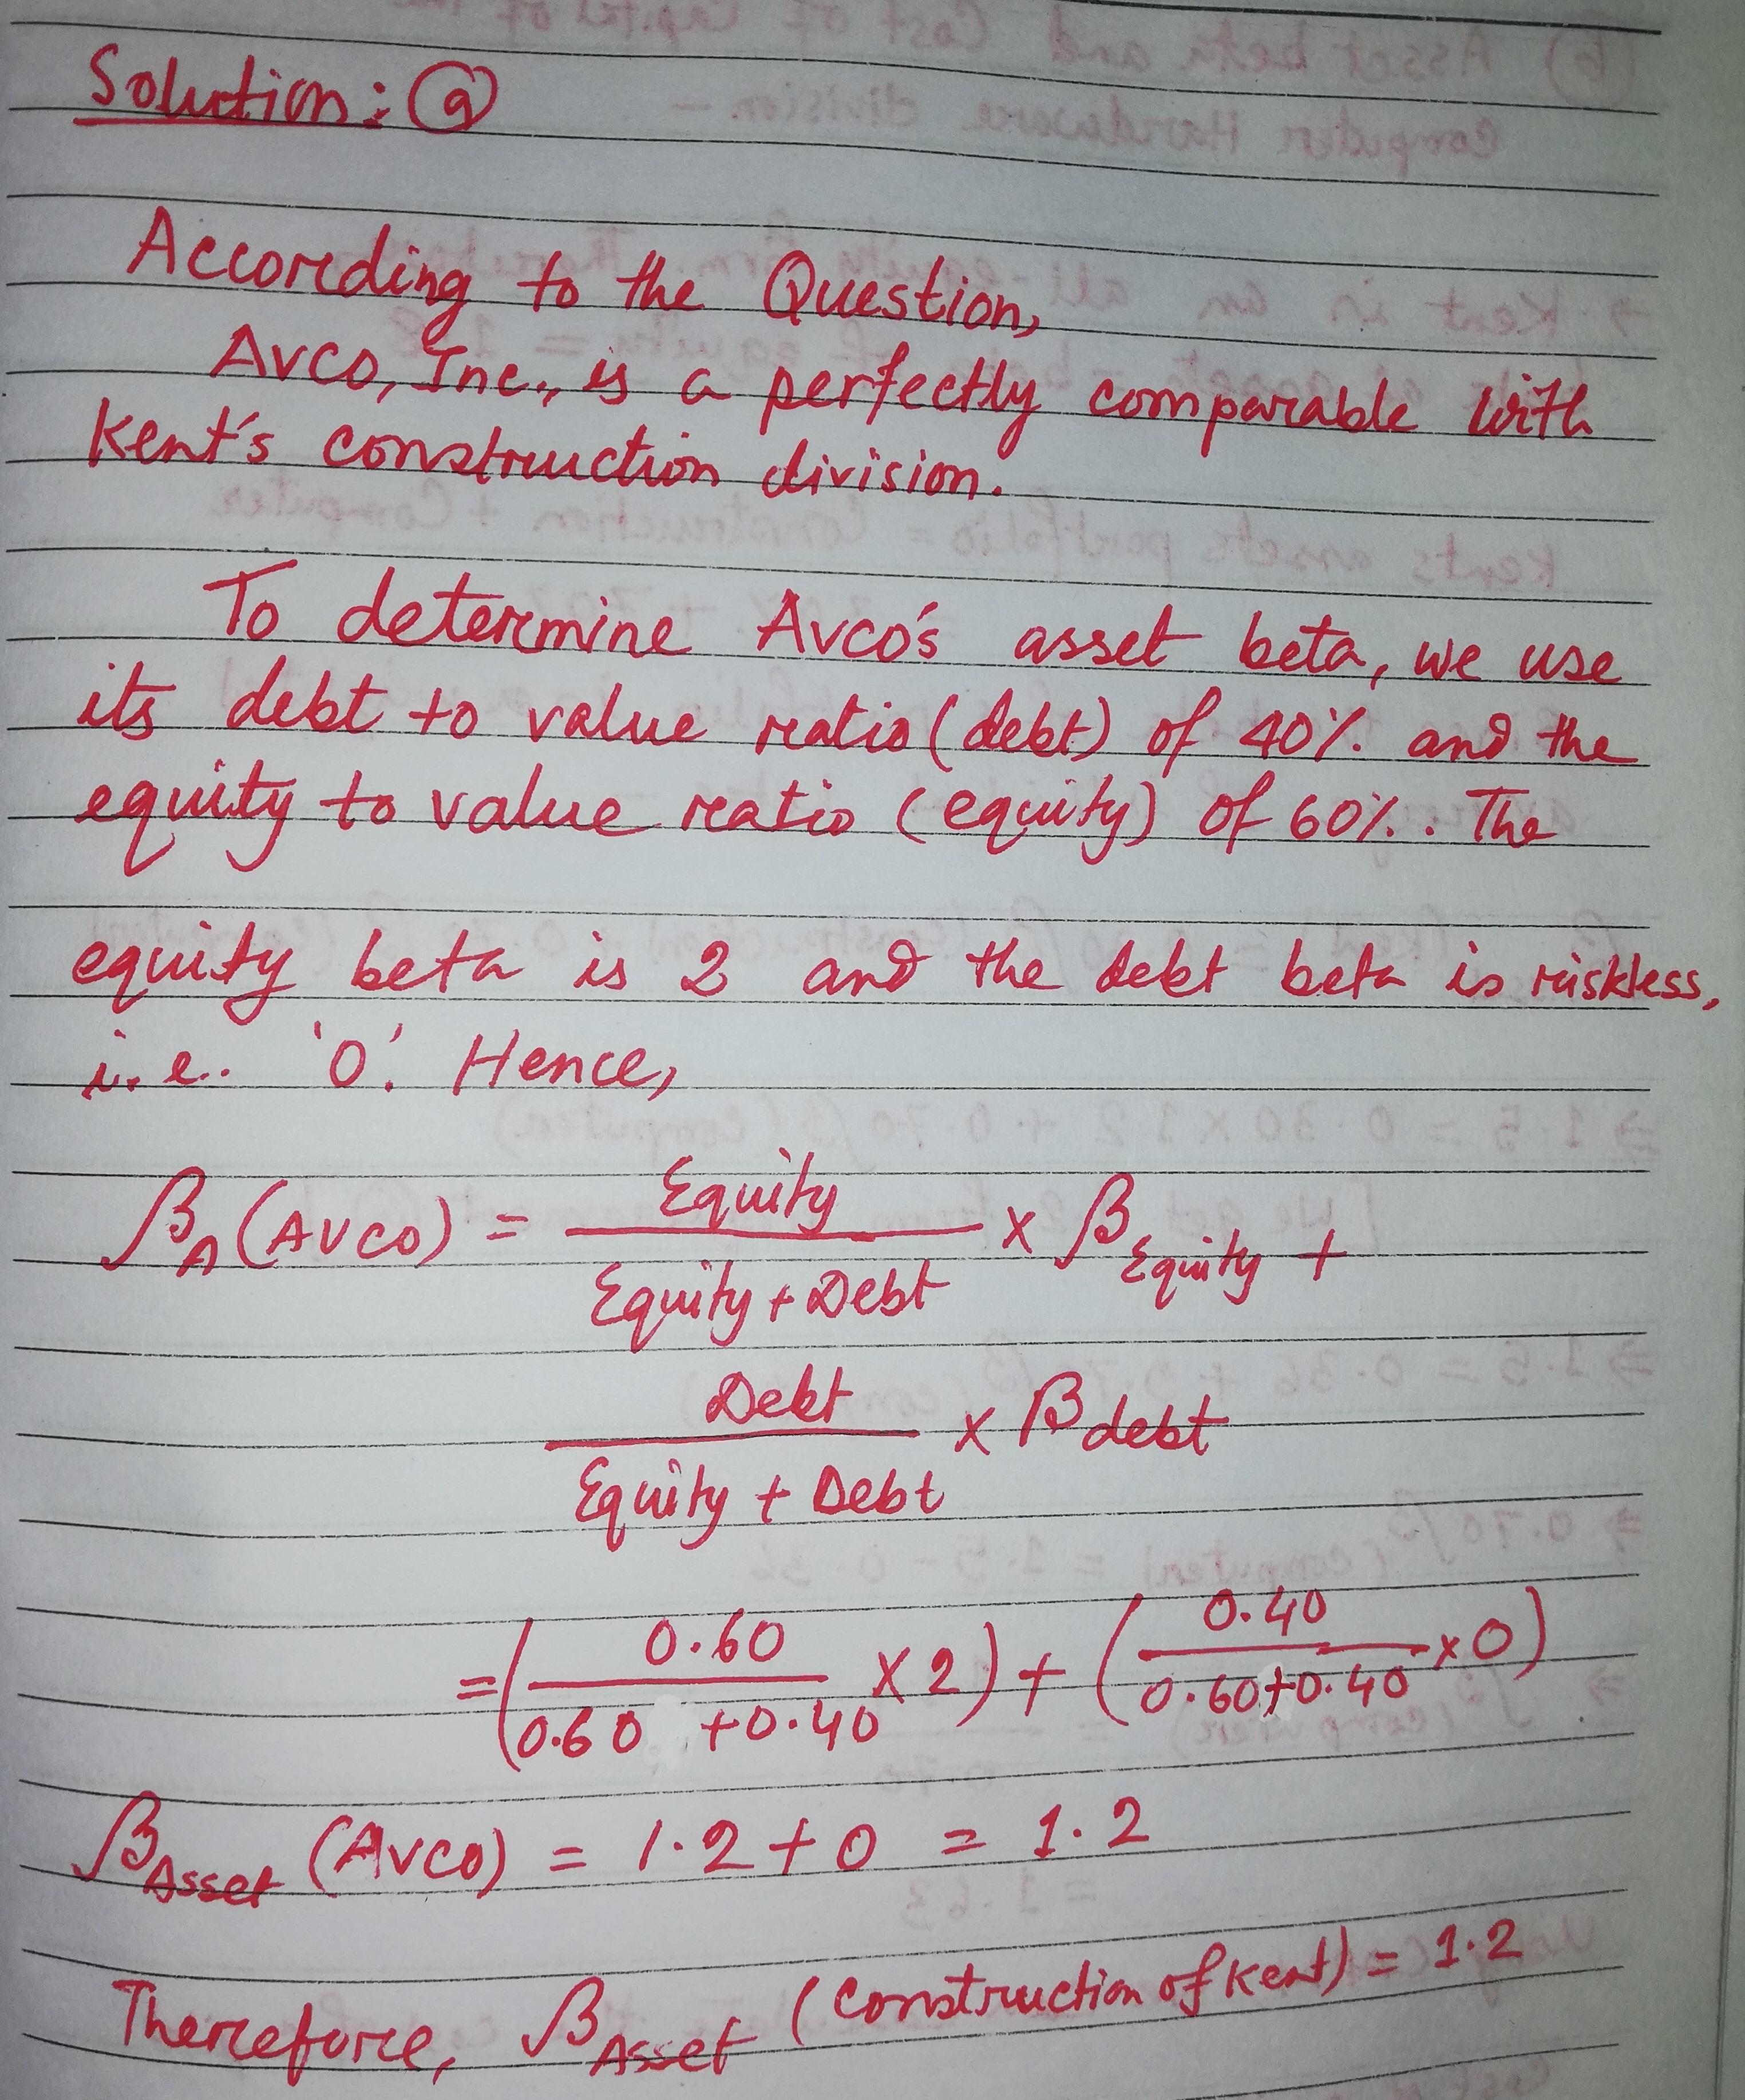 Solution: ⓐ
According to the Question,
Avco, Inc., is a perfectly comparable with
Kent's construction division.
To determine Avco's asset beta, we use
its debt to value ratio (debt) of 40% and the
equity to value ratio (equity) of 60%. The
equity beta is 2 and the debt beta is riskless,
i.e.. '0'. Hence,
β_A (AVCO) = Equity / Equity + Debt × β_Equity +
Debt / Equity + Debt × β_debt
= (0.60 / 0.60 + 0.40 × 2) + (0.40 / 0.60 + 0.40 × 0)
β_Asset (AVCO) = 1.2 + 0 = 1.2
Therefore, β_Asset (Construction of Kent) = 1.2